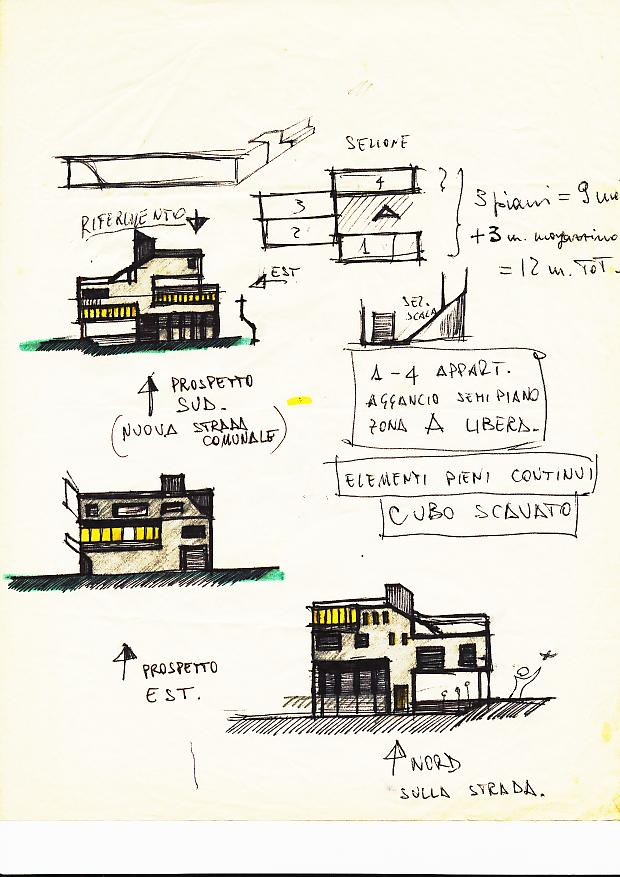 SEZIONE
4
3
A
2
1
?
3 piani = 9 me
+3 m. magazzino
= 12 m. TOT.
RIFERIMENTO
EST
SEZ.
SCALA
PROSPETTO
SUD.
(NUOVA STRADA
COMUNALE)
1-4 APPART.
AGGANCIO SEMIPIANO
ZONA A LIBERA.
ELEMENTI PIENI CONTINUI
CUBO SCAVATO
PROSPETTO
EST.
NORD
SULLA STRADA.